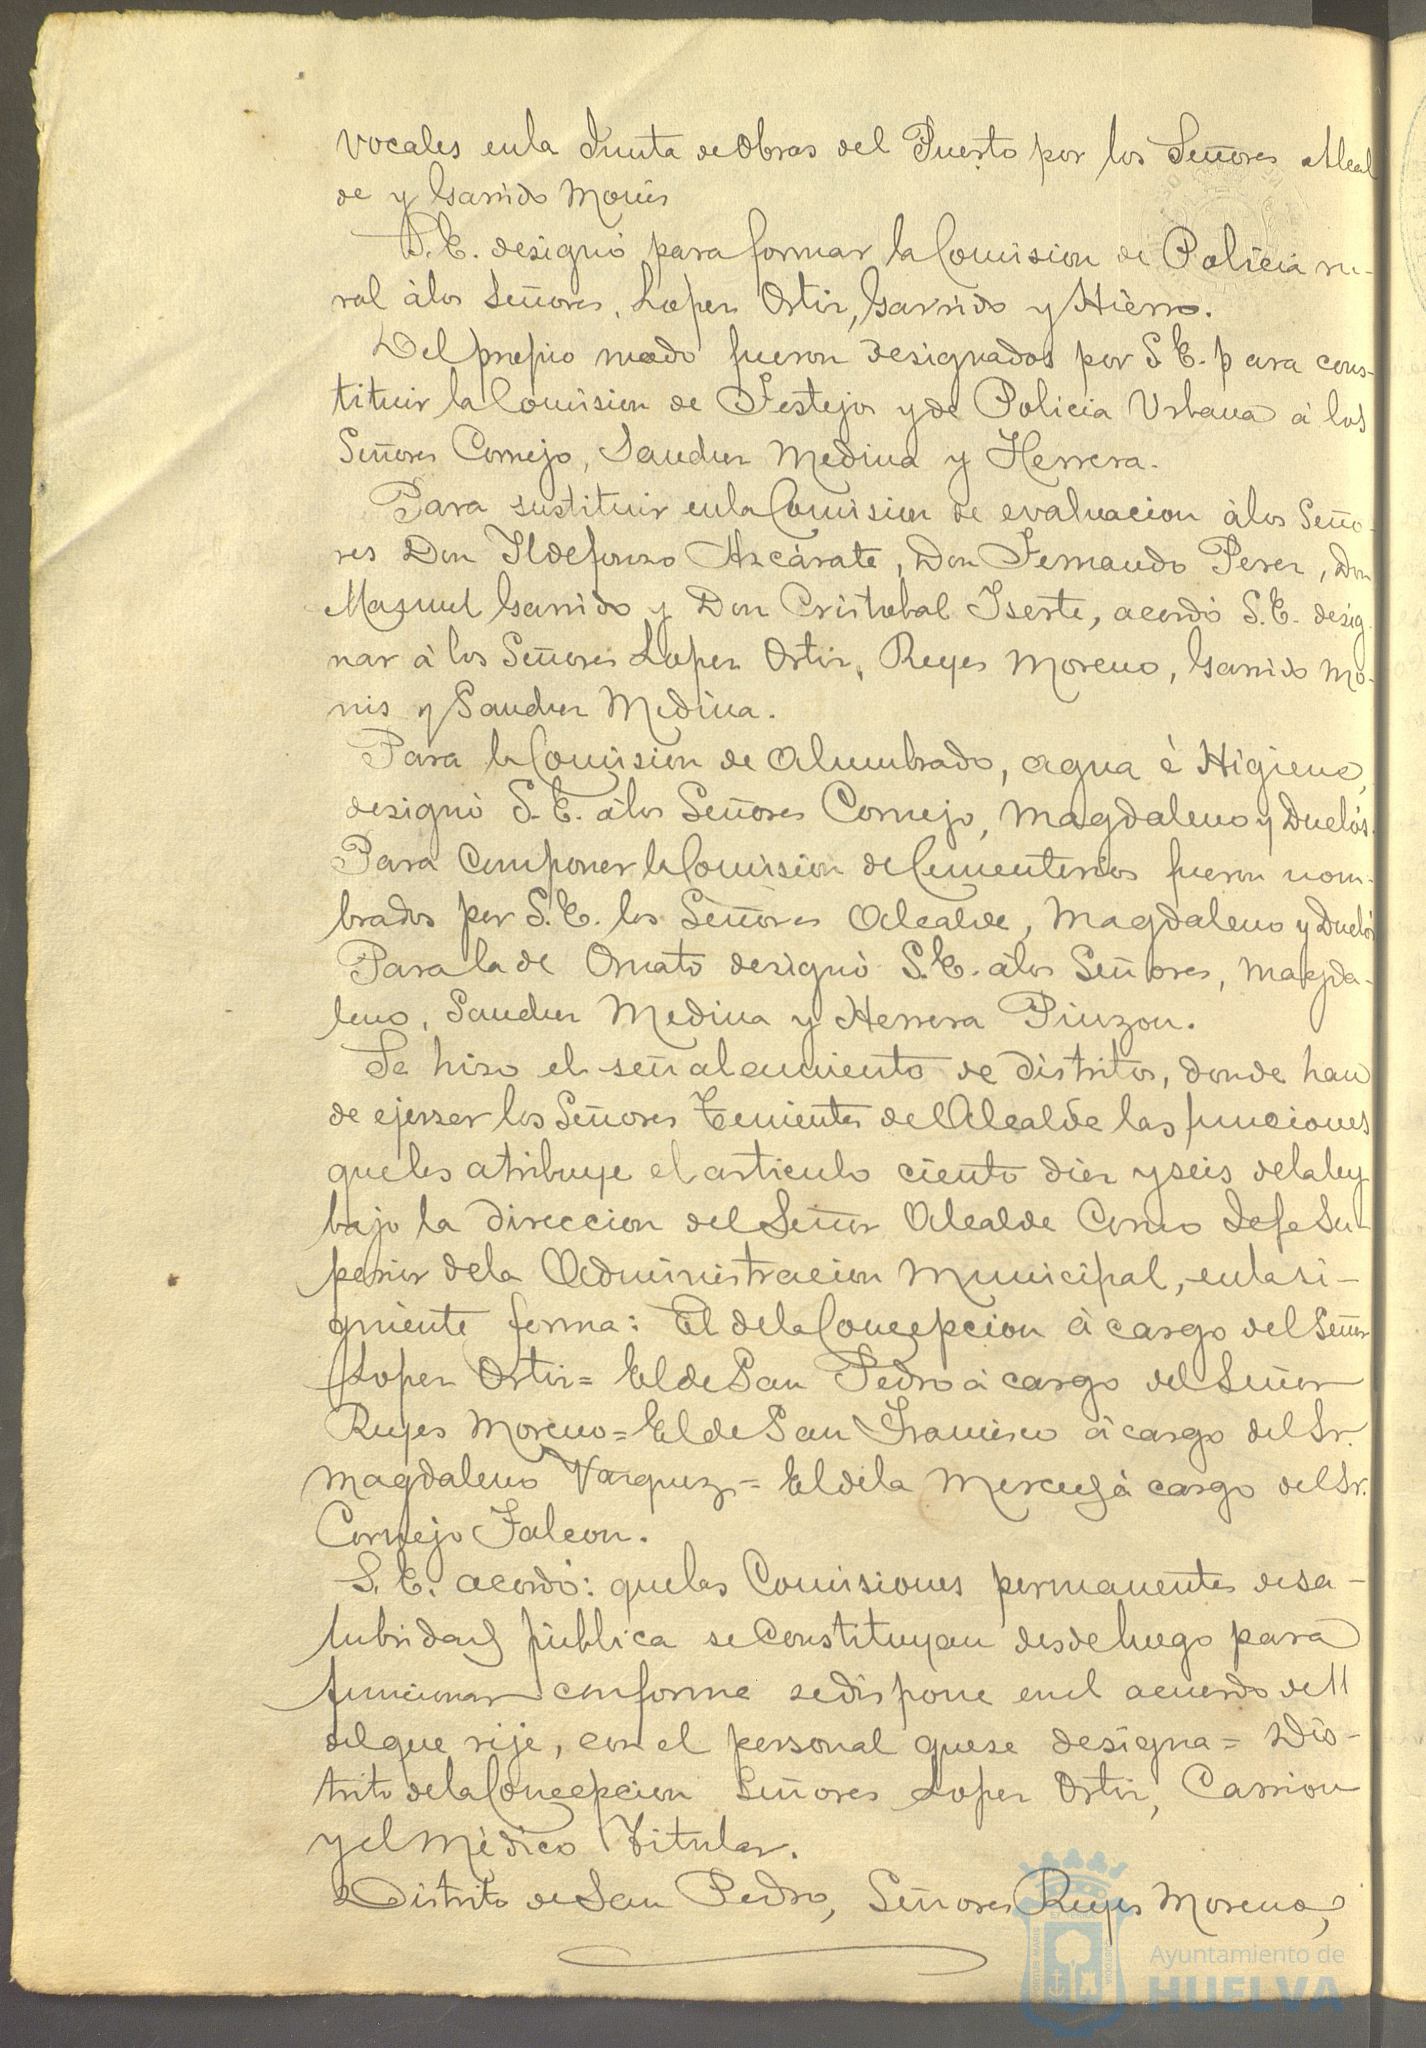 vocales en la Junta de Obras del Puerto por los Señores Alcal
de y Garrido Monis
S. E. designó para formar la Comision de Policia ru-
ral à los Señores, Lopez Ortiz, Garrido y Hierro.
Del propio modo fueron designados por S E. para cons-
tituir la Comision de Festejos y de Policia Urbana à los
Señores Cornejo, Sanchez Medina y Herrera.
Para sustituir en la Comision de evaluacion à los Seño-
res Don Ildefonso Azcárate, Don Fernando Perez, Don
Manuel Garrido y Don Cristobal Iserte, acordó S. E. desig-
nar à los Señores Lopez Ortiz, Reyes Moreno, Garrido Mo-
nis y Sanchez Medina.
Para la Comision de Alumbrado, agua é Higiene,
designó S. E. à los Señores Cornejo, Magdaleno y Duclós.
Para componer la Comision de Cementerios fueron nom-
brados por S. E. los Señores Alcalde, Magdaleno y Duclós
Para la de Ornato designó S. E. à los Señores, Magda-
leno, Sanchez Medina y Herrera Pinzon.
Se hizo el señalamiento de distritos, donde han
de ejerser los Señores Tenientes de Alcalde las funciones
que les atribuye el articulo ciento diez y seis de la ley
bajo la direccion del Señor Alcalde Como Jefe Su-
perior de la Administracion Municipal, en la si-
guiente forma: El de la Concepcion à cargo del Señor
Lopez Ortiz= El de San Pedro à cargo del Señor
Reyes Moreno= El de San Francisco à cargo del Sr.
Magdaleno Vazquez= El de la Merced à cargo del Sr.
Cornejo Falcon.
S. E. acordó: que las Comisiones permanentes de sa-
lubridad pública se Constituyan desde luego para
funcionar conforme se dispone en el acuerdo de 11
del que rije, con el personal que se designa= Dis-
trito de la Concepcion Señores Lopez Ortiz, Carrion
y el Mèdico Titular.
Distrito de San Pedro, Señores Reyes Moreno,
Ayuntamiento de
HUELVA